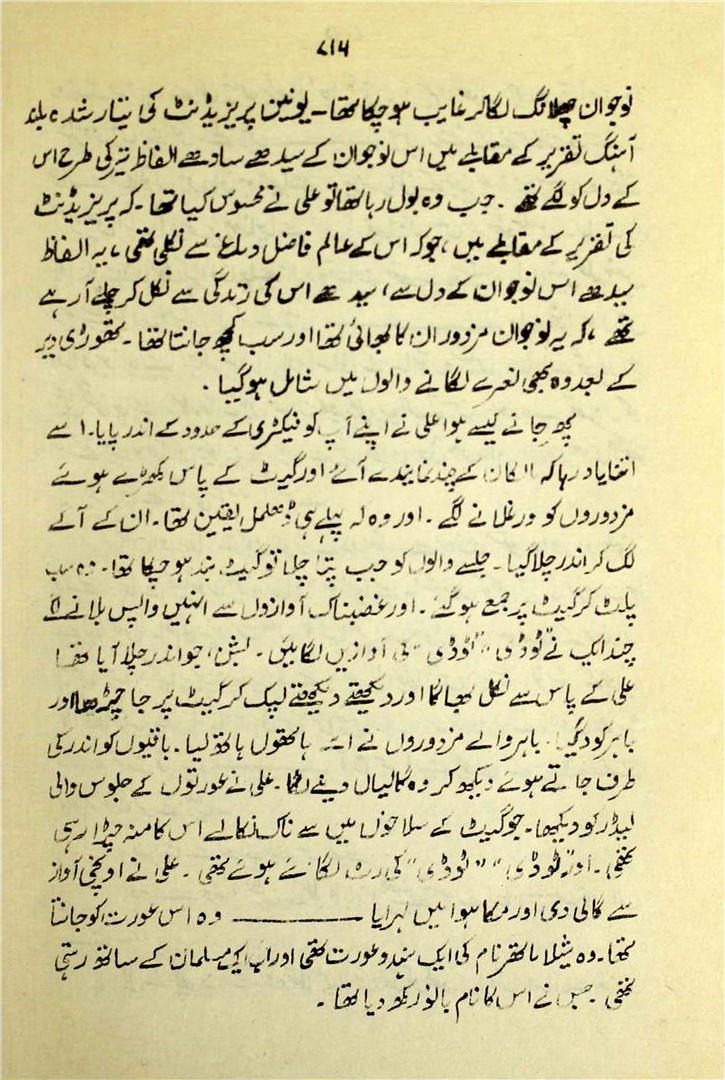 ۷۱۶
نوجوان چھلانگ لگا کر غایب ہو چکا تھا۔ یونین پریزیڈنٹ کی تیار شدہ بلند
آہنگ تقریر کے مقابلے میں اس نوجوان کے سیدھے سادھے الفاظ تیر کی طرح اس
کے دل کو لگے تھے ۔ جب وہ بول رہا تھا تو علی نے محسوس کیا تھا ۔ کہ پریزیڈنٹ
کی تقریر کے مقابلے میں ، جو کہ اس کے عالم فاضل دماغ سے نکلی تھی ، یہ الفاظ
سیدھے اس نوجوان کے دل سے ، سیدھے اس کی زندگی سے نکل کر چلے آ رہے
تھے ، کہ یہ نوجوان مزدور ان کا بھائی تھا اور سب کچھ جانتا تھا ۔ تھوڑی دیر
کے بعد وہ بھی نعرے لگانے والوں میں شامل ہو گیا ۔
کچھ جانے کیسے ہوا علی نے اپنے آپ کو فیکٹری کے حدود کے اندر پایا۔ اسے
اتنا یاد رہا کہ مالکان کے چند نمایندے آئے اور گیٹ کے پاس کھڑے ہوئے
مزدوروں کو ورغلانے لگے ۔ اور وہ کہ پہلے ہی ڈھلمل یقین تھا۔ ان کے آگے
لگ کر اندر چلا گیا ۔ جلسے والوں کو جب پتا چلا تو گیٹ بند ہو چکا تھا ۔ وہ سب
پلٹ کر گیٹ پر جمع ہو گئے ۔ اور غضبناک آوازوں سے انہیں واپس بلانے لگے
چند ایک نے "ٹوڈی" "ٹوڈی" کی آوازیں لگائیں ۔ بشن ، جو اندر چلا آیا تھا
علی کے پاس سے نکل بھاگا اور دیکھتے دیکھتے لپک کر گیٹ پر جا چڑھا اور
باہر کود گیا ۔ باہر والے مزدوروں نے اسے ہاتھوں ہاتھ لیا ۔ باقیوں کو اندر کی
طرف جاتے ہوئے دیکھ کر وہ گالیاں دینے لگا ۔ علی نے عورتوں کے جلوس والی
لیڈر کو دیکھا ۔ جو گیٹ کے سلاخوں میں سے ناک نکالے اس کا منہ چڑا رہی
تھی ۔ اور "ٹوڈی" "ٹوڈی" کی رٹ لگائے ہوئے تھی ۔ علی نے اونچی آواز
سے گالی دی اور مکا ہوا میں لہرایا ـــــــــــ وہ اس عورت کو جانتا
تھا ۔ وہ شیلا نام کی ایک ہندو عورت تھی اور اب ایک مسلمان کے ساتھ رہتی
تھی ۔ جس نے اس کا نام بانو رکھ دیا تھا ۔